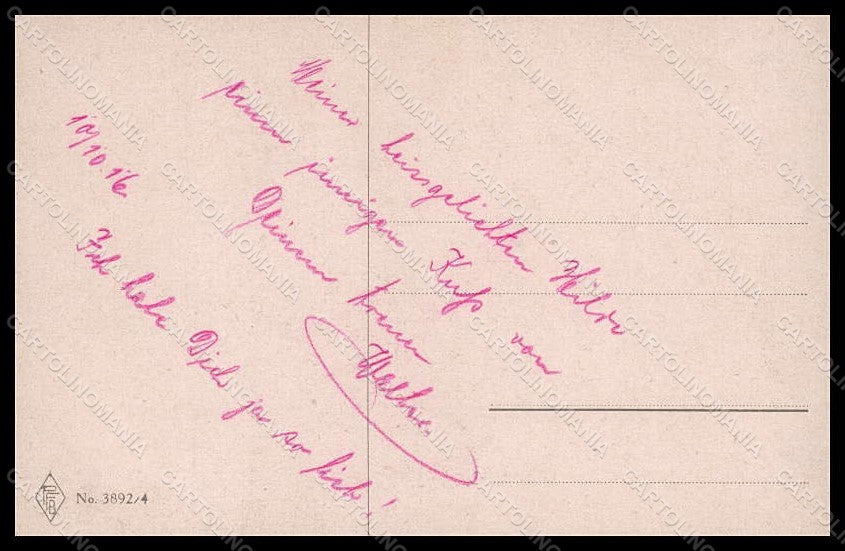 10/10.16
Meiner heissgeliebten Hilde
einen innigen Kuß von
Deinem treuen
Walther.
Ich habe Dich ja so lieb!
PFB
No. 3892/4
CARTOLINOMANIA